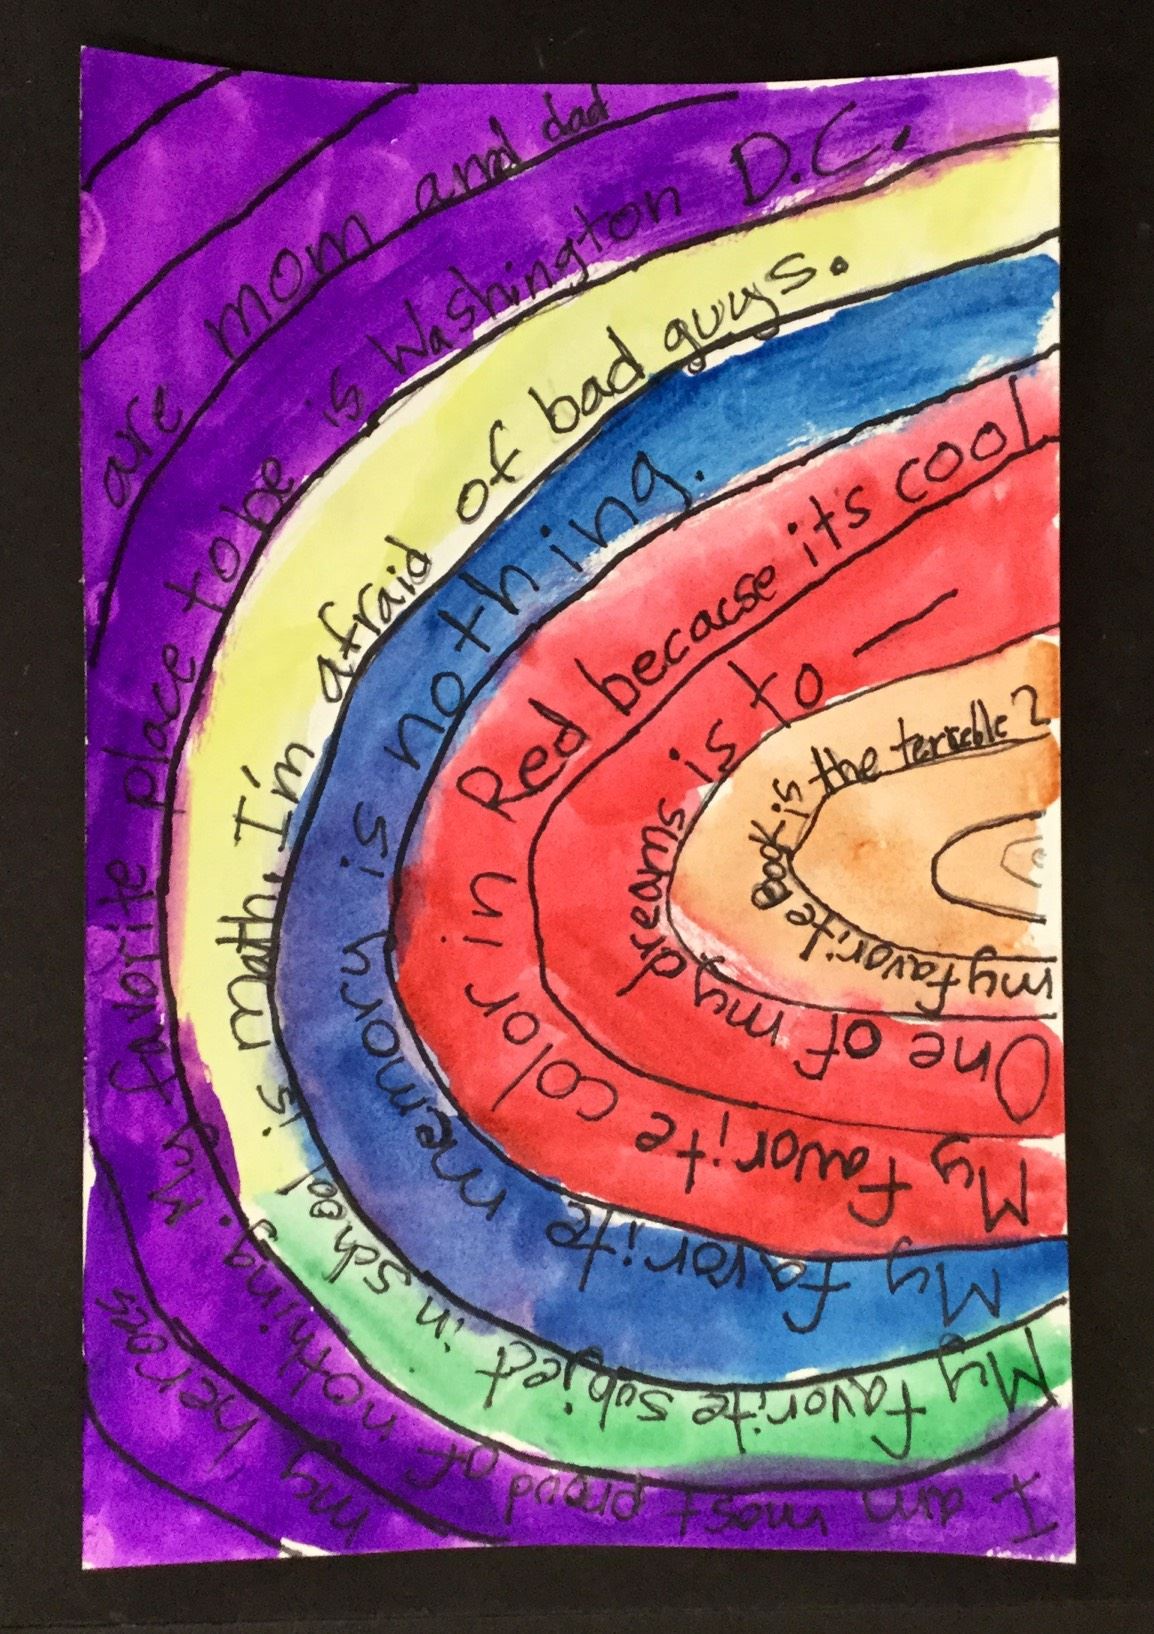 my heroes are mom and dad
I am most proud of nothing. My favorite place to be is Washington D.C.
My favorite subject in school is math, I'm afraid of bad guys.
My favorite memory is nothing.
My favorite color in Red becacse it's cool
One of my dreams is to —
my favorite Book is the terrible 2